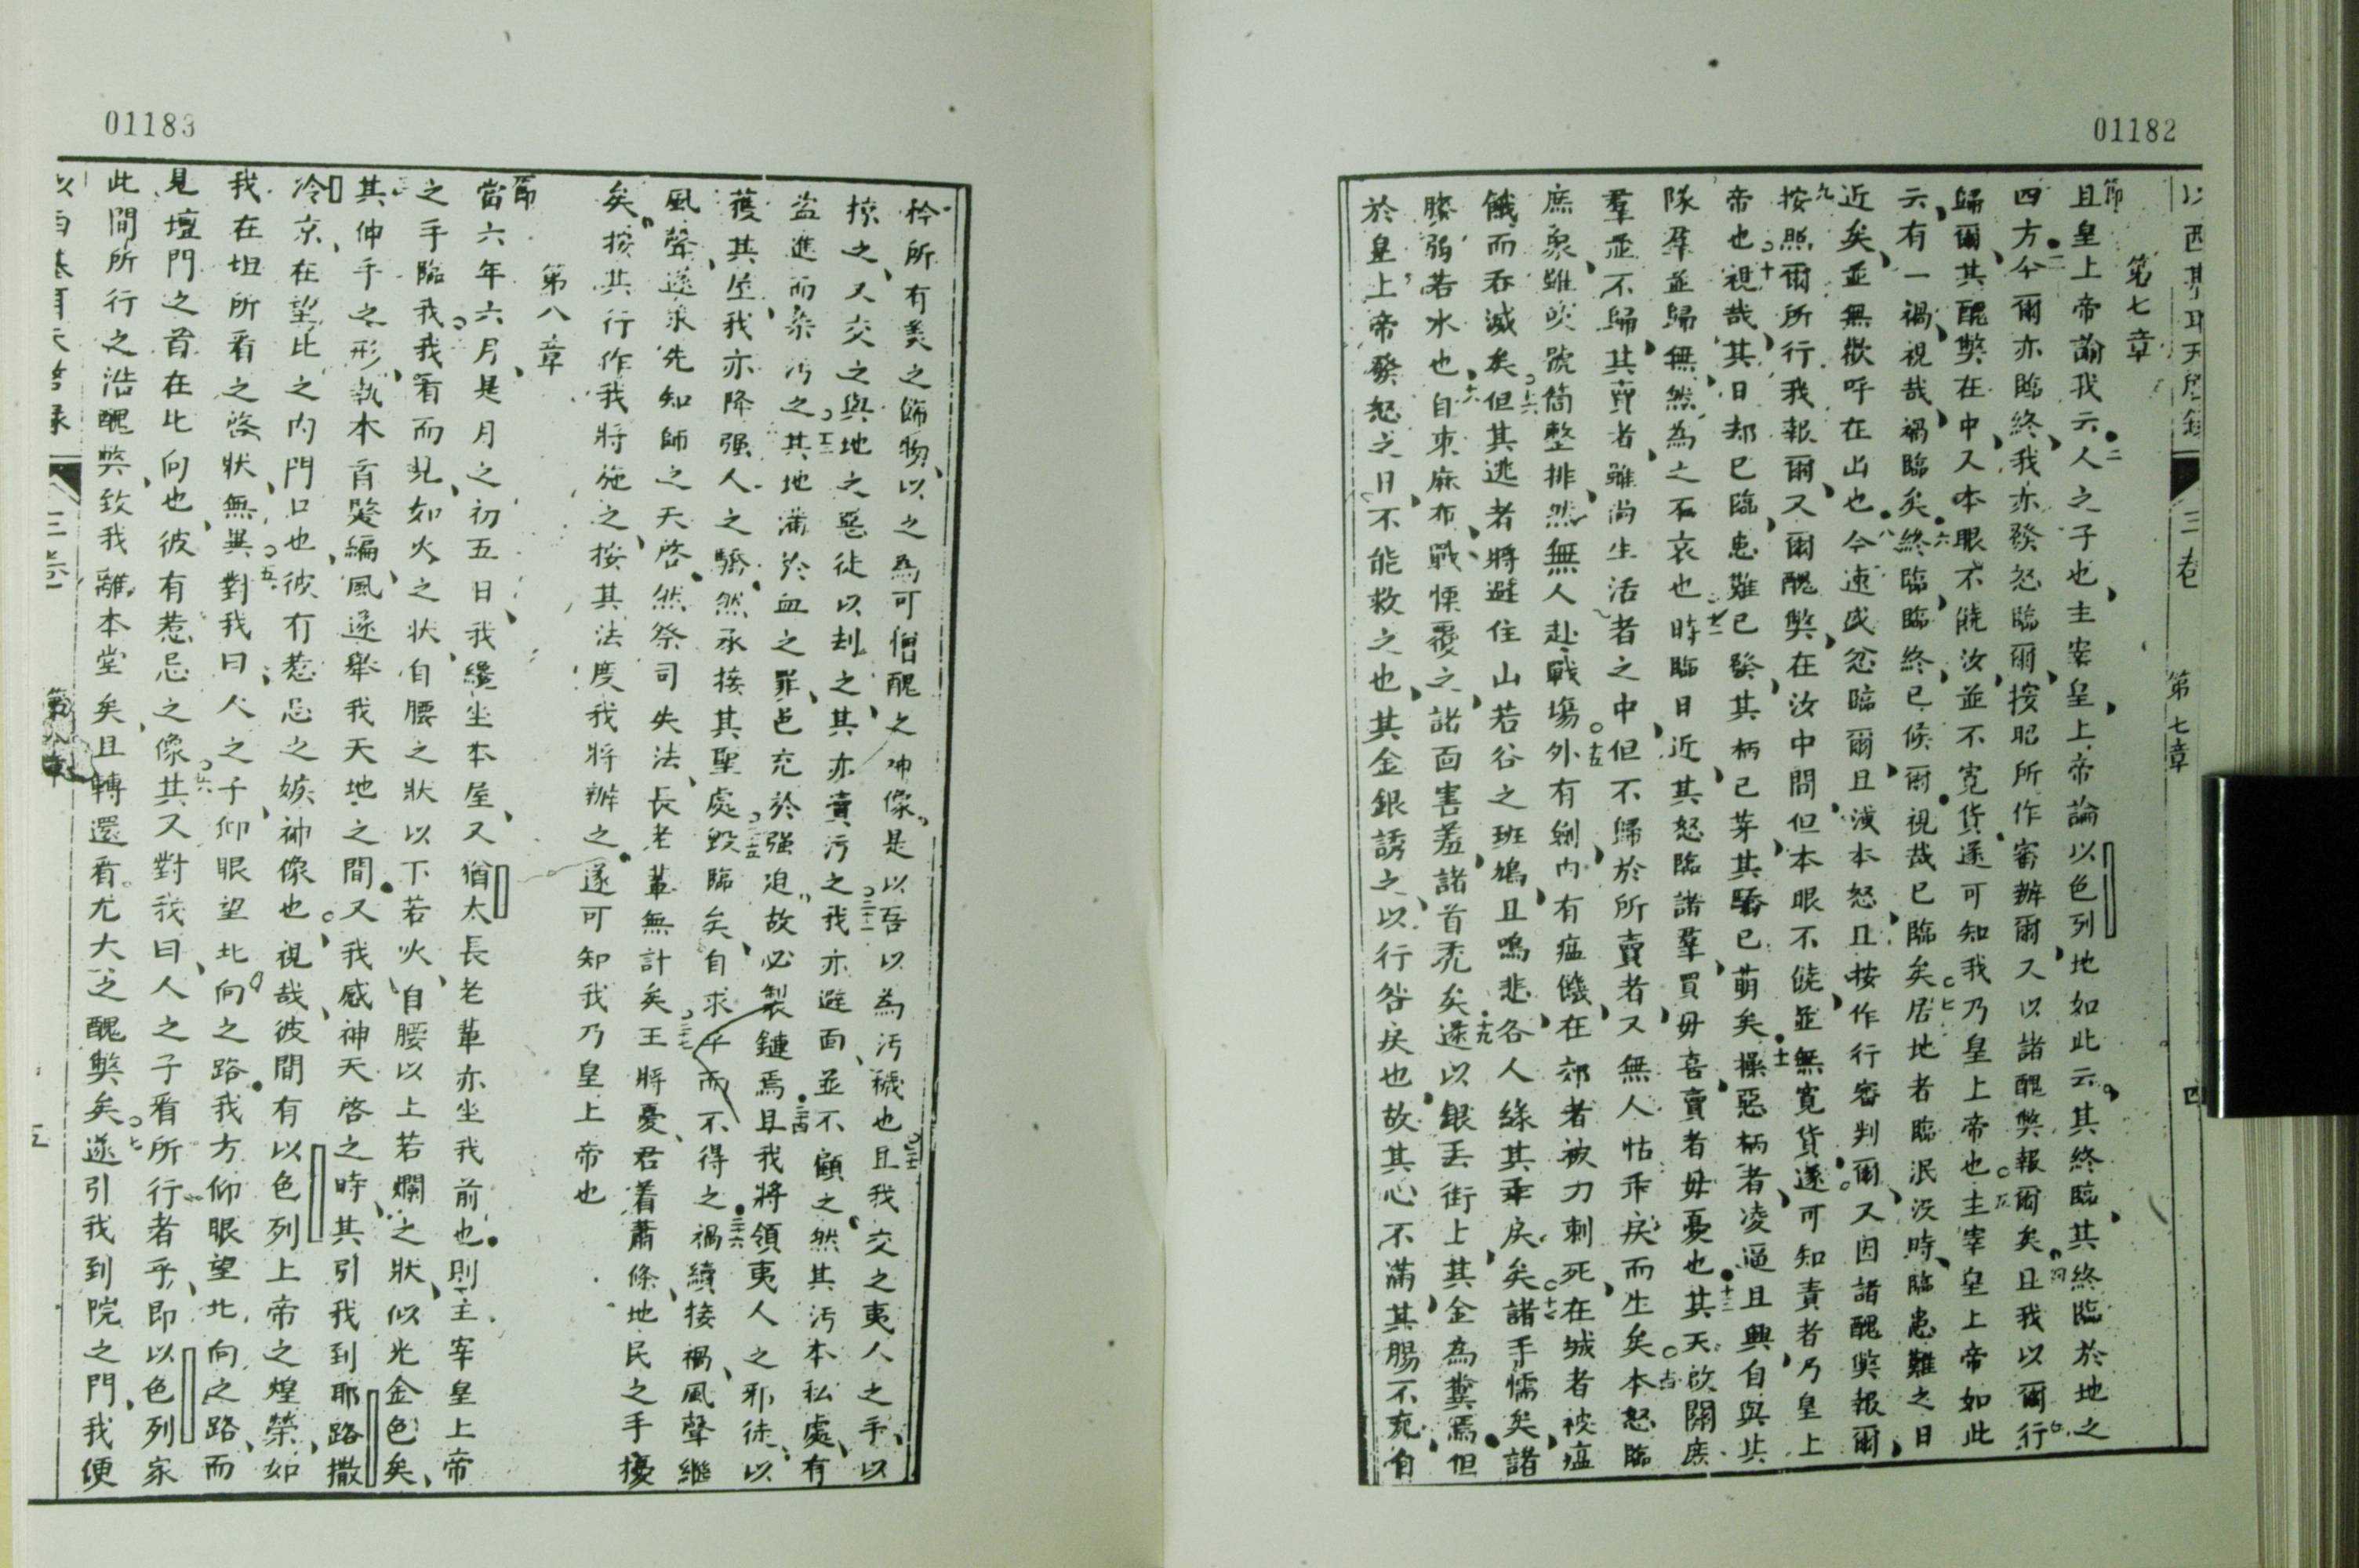 01182
三卷 第七章 四
第七章
節
且皇上帝諭我云人之子也主宰皇上帝論以色列地如此云其終臨其終臨於地之
四方今爾亦臨終我亦發怒臨爾按照所作審辦爾又以諸醜弊報爾矣且我以爾行
歸爾其醜弊在中又本眼不饒汝並不寬貨遂可知我乃皇上帝也主宰皇上帝如此
云有一禍視哉禍臨矣終臨臨終已候爾視哉已臨矣居地者臨泯沒時臨患難之日
近矣並無歡呼在山也今速成忿臨爾且洩本怒且按作行審判爾又因諸醜弊報爾
按照爾所行我報爾又爾醜弊在汝中間但本眼不饒並無寬貨遂可知責者乃皇上
帝也視哉其日却已臨患難已發其柄已芽其驕已萌矣操惡柄者凌逼且興自與其
隊羣並歸無然為之不哀也時臨日近其怒臨諸羣買毋喜賣者毋憂也其天啟關庶
羣並不歸其賣者雖尚生活者之中但不歸於所賣者又無人怙乖戾而生矣本怒臨
庶象雖吹號筒整排然無人赴戰場外有劍內有瘟饑在郊者被力刺死在城者被瘟
饑而吞滅矣但其逃者將避住山若谷之班鳩且鳴悲各人緣其乖戾矣諸手懦矣諸
膝弱若水也自束麻布戰慄覆之諸面害羞諸首禿矣遂以銀丟街上其金為糞焉但
於皇上帝發怒之日不能救之也其金銀誘之以行咎戾也故其心不滿其腸不充自
01183
矜所有美之飾物以之為可憎醜之神像是以吾以為污穢也且我交之夷人之手以
掠之又交之與地之惡徒以刦之其亦賣污之我亦避面並不顧之然其污本私處有
盜進而染污之其地滿於血之罪邑充於强迫故必製鏈焉且我將領夷人之邪徒以
獲其屋我亦降强人之驕然承接其聖處毀臨矣自求平而不得之禍續接禍風聲繼
風聲遂求先知師之天啓然祭司失法長老輩無計矣王將憂君着蕭條地民之手擾
矣按其行作我將施之按其法度我將辦之遂可知我乃皇上帝也
第八章
節
當六年六月是月之初五日我纔坐本屋又猶太長老輩亦坐我前也則主宰皇上帝
之手臨我我看而見如火之狀自腰之狀以下若火自腰以上若爛之狀似光金色矣
其伸手之形執本首髮編風遂舉我天地之間又我感神天啓之時其引我到耶路撒
冷京在望北之內門口也彼有惹忌之嫉神像也視哉彼間有以色列上帝之煌榮如
我在坦所看之啓狀無異對我曰人之子仰眼望北向之路我方仰眼望北向之路而
見壇門之首在此向也彼有惹忌之像其又對我曰人之子看所行者乎即以色列家
此間所行之浩醜弊致我離本堂矣且轉還看尤大之醜弊矣遂引我到院之門我便
三卷 五